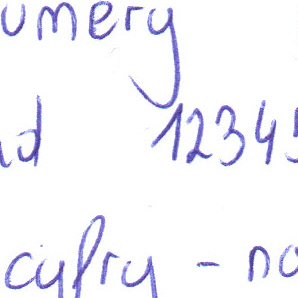 umery
ad 12345
cyfry - na